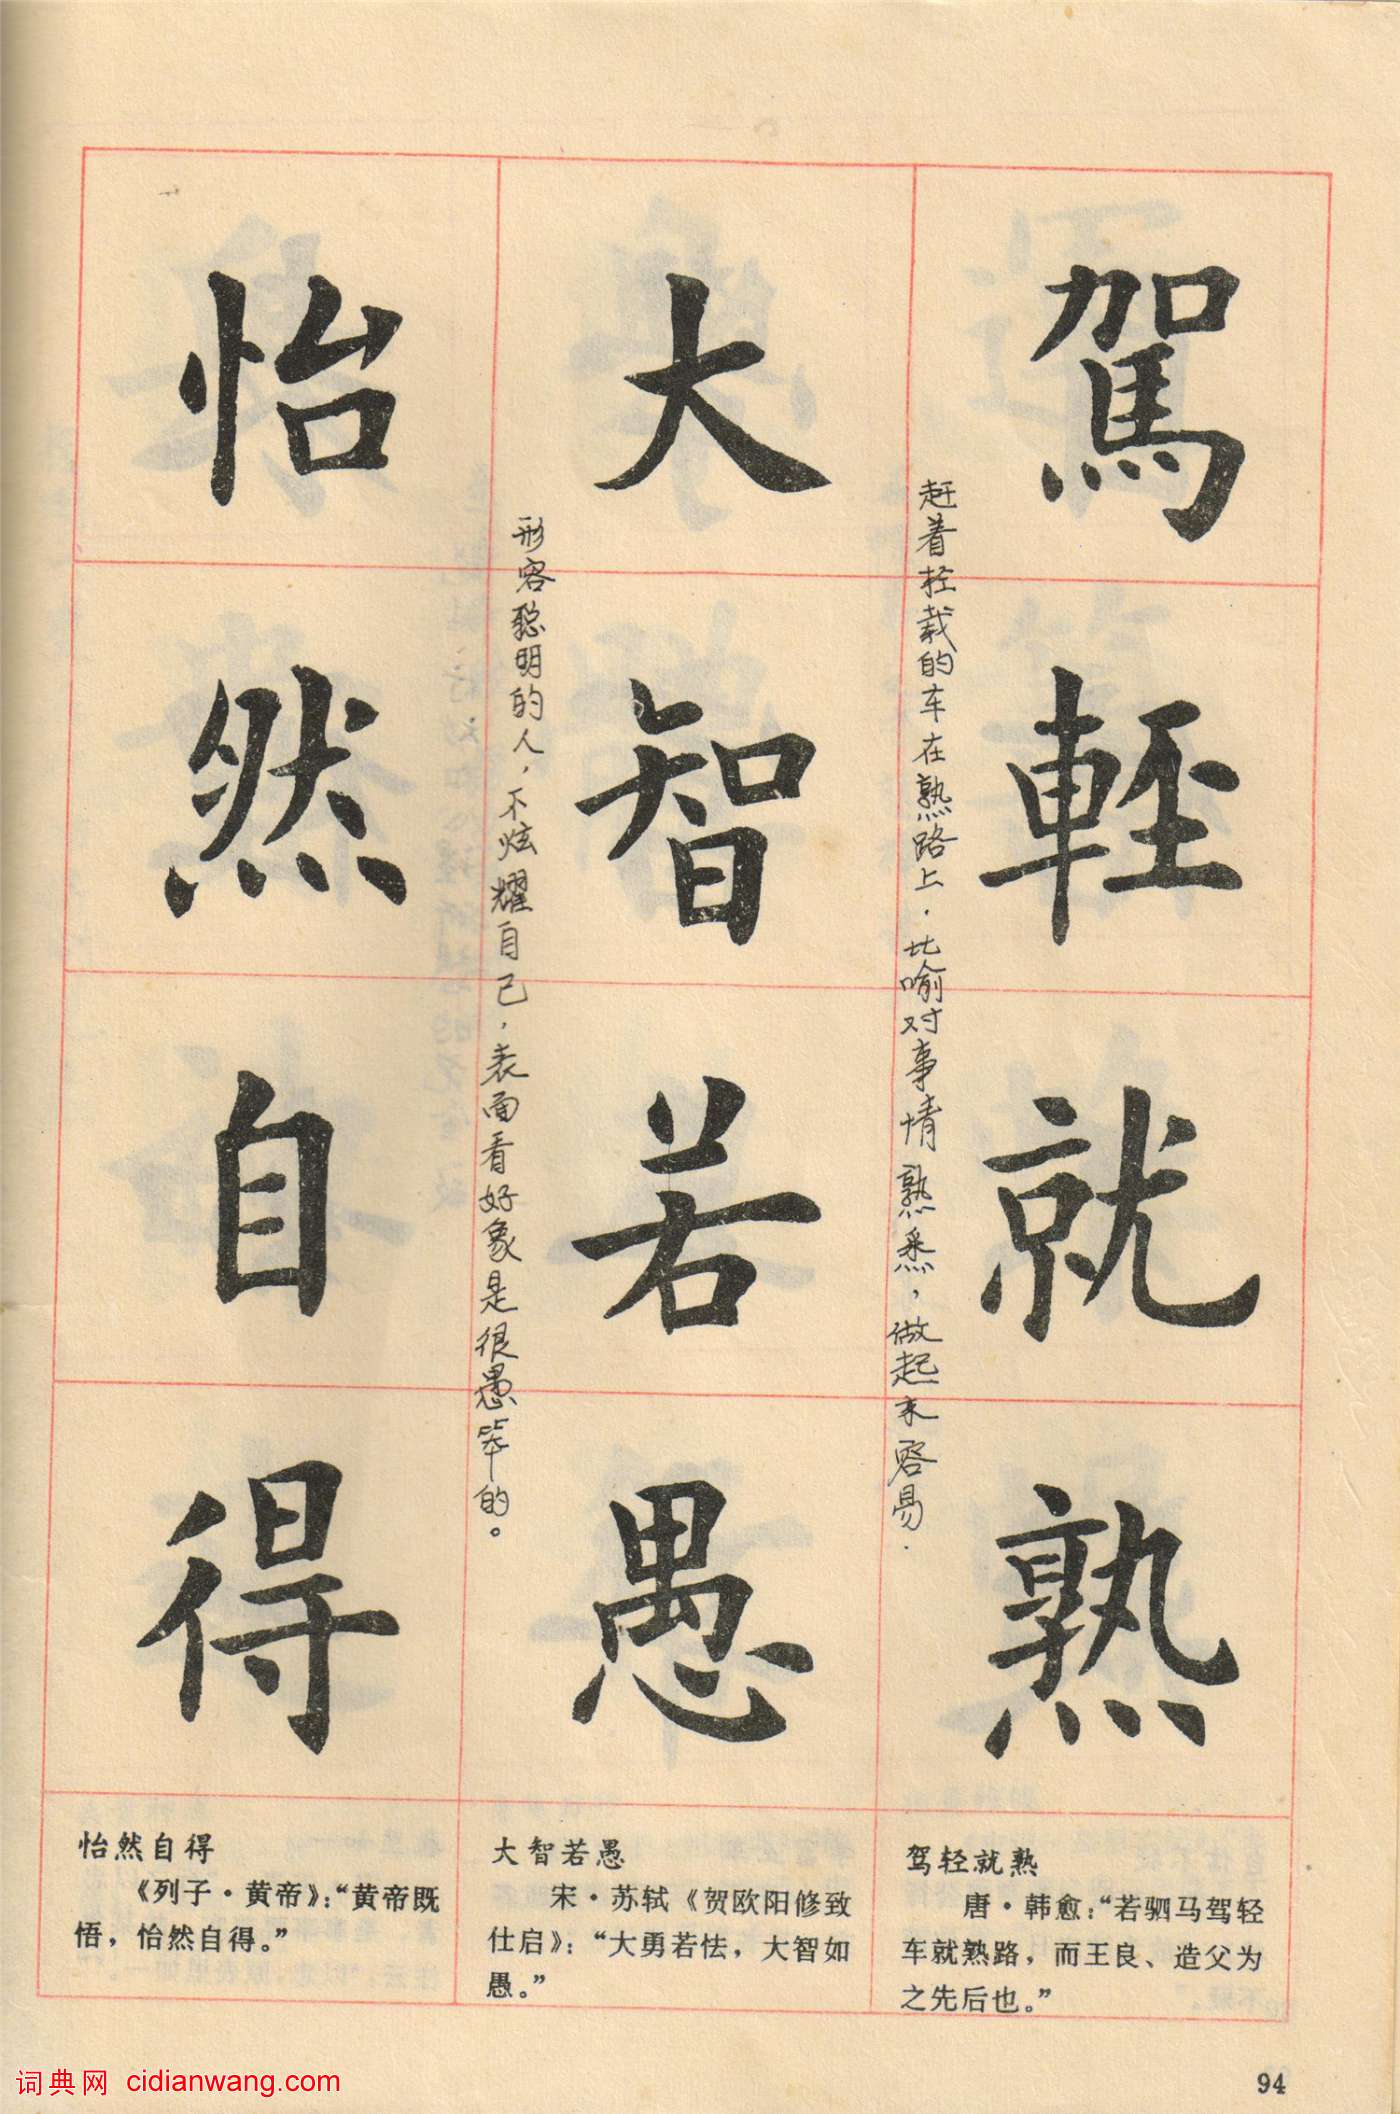 駕輕就熟
赶着轻载的车在熟路上.比喻对事情熟悉,做起来容易.
大智若愚
形容聪明的人,不炫耀自己,表面看好象是很愚笨的。
怡然自得
驾轻就熟
唐·韩愈:“若驷马驾轻
车就熟路,而王良、造父为
之先后也。”
大智若愚
宋·苏轼《贺欧阳修致
仕启》:“大勇若怯,大智如
愚。”
怡然自得
《列子·黄帝》:“黄帝既
悟,怡然自得。”
94
词典网 cidianwang.com